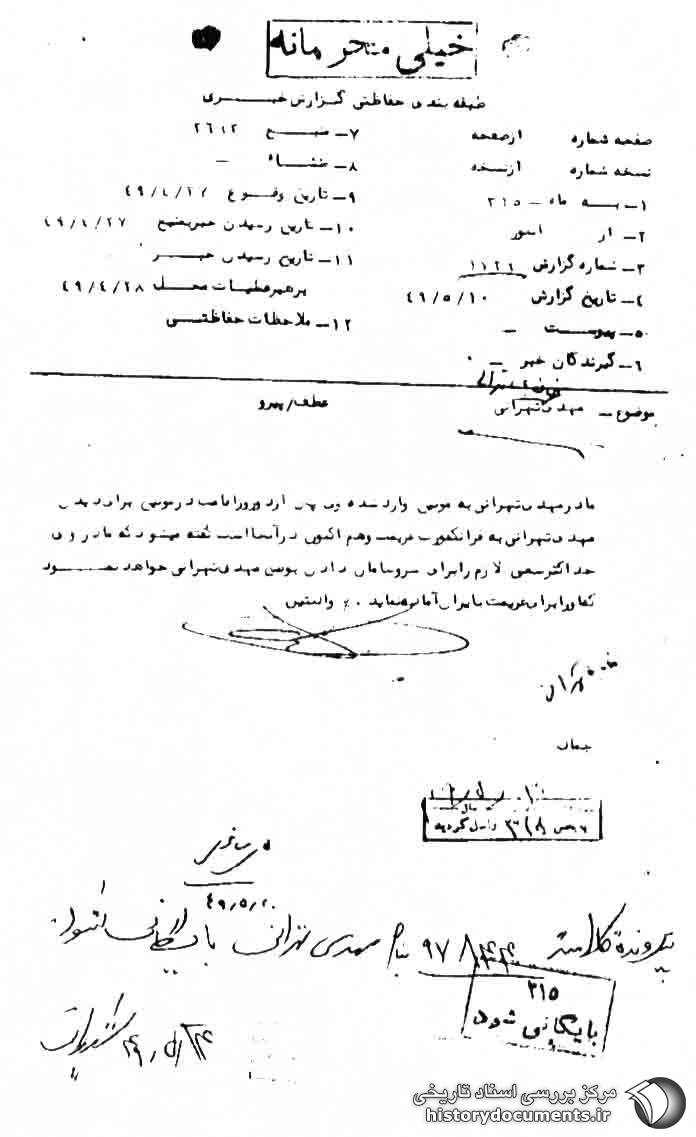 خیلی محرمانه
طبقه بندی حفاظتی گزارش خبری
صفحه شماره از صفحه
نسخه شماره از نسخه
۱- به ماه - ۳۱۵
۲- از
۳- شماره گزارش
۴- تاریخ گزارش ۴۹/۵/۱۰
۵- پیوست -
۶- گیرندگان خبر -
۷- منبع ۲۶۱۲
۸- منشاء -
۹- تاریخ وقوع
۱۰- تاریخ رسیدن خبر بمنبع ۴۹/۴/۲۷
۱۱- تاریخ رسیدن خبر
برهبر عملیات محل ۴۹/۴/۲۸
۱۲- ملاحظات حفاظتی
موضوع - مهدی تهرانی
عطف/پیرو
مادر مهدی تهرانی به مونیخ وارد شده وی پس از دو روز اقامت در مونیخ برای دیدن
مهدی تهرانی به فرانکفورت عزیمت و هم اکنون در آنجا است گفته میشود که مادر وی
حداکثر سعی لازم را برای سروسامان دادن بوضع مهدی تهرانی خواهد نمود
تا او را برای عزیمت بایران آماده نماید .
به بخش ۳۱۵ واصل گردید
۴۹/۵/۲۰
پرونده کلاسه بنام مهدی تهرانی بایگانی شود
۳۱۵
بایگانی شود
۴۹/۵/۲۴
مرکز بررسی اسناد تاریخی
historydocuments.ir